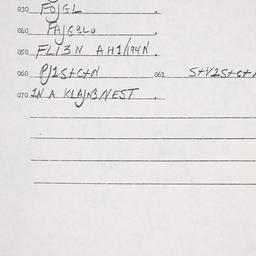 030 FOJGL .
040 FAJG3LO .
050 FLI3N AH1/194N .
060 PJ1S+C+N 061 S+V1S+C+
070 IN A KLAJN3/NEST .